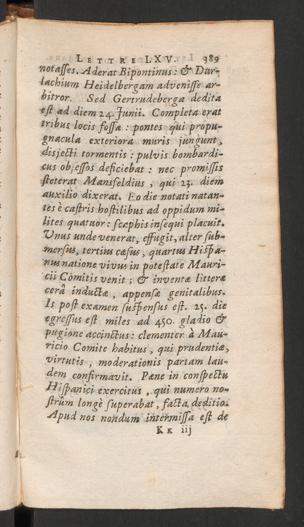 LETTRE LXV. 989
notasses. Aderat Bipontinus: & Dur-
lachium Heidelbergam advenisse ar-
bitror. Sed Gertrudeberga dedita
est ad diem 24. Junii. Completa erat
tribus locis fossa: pontes qui propu-
gnacula exteriora muris jungunt,
disjecti tormentis: pulvis bombardi-
cus obsessos deficiebat: nec promissis
steterat Mansfeldius, qui 23. diem
auxilio dixerat. Eo die notati natan-
tes è castris hostilibus ad oppidum mi-
lites quatuor: scaphis insequi placuit.
Unus unde venerat, effugit, alter sub-
mersus, tertius cæsus, quartus Hispa-
nus natione vivus in potestate Mauri-
cii Comitis venit; & inventæ litteræ
cerâ inductæ, appensæ genitalibus.
Is post examen suspensus est. 25. die
egressus est miles ad 450. gladio &
pugione accinctus: clementer à Mau-
ricio Comite habitus, qui prudentiæ,
virtutis, moderationis partam lau-
dem confirmavit. Pæne in conspectu
Hispanici exercitus, qui numero no-
strûm longè superabat, facta deditio.
Apud nos nondum intermissa est de
KK iij